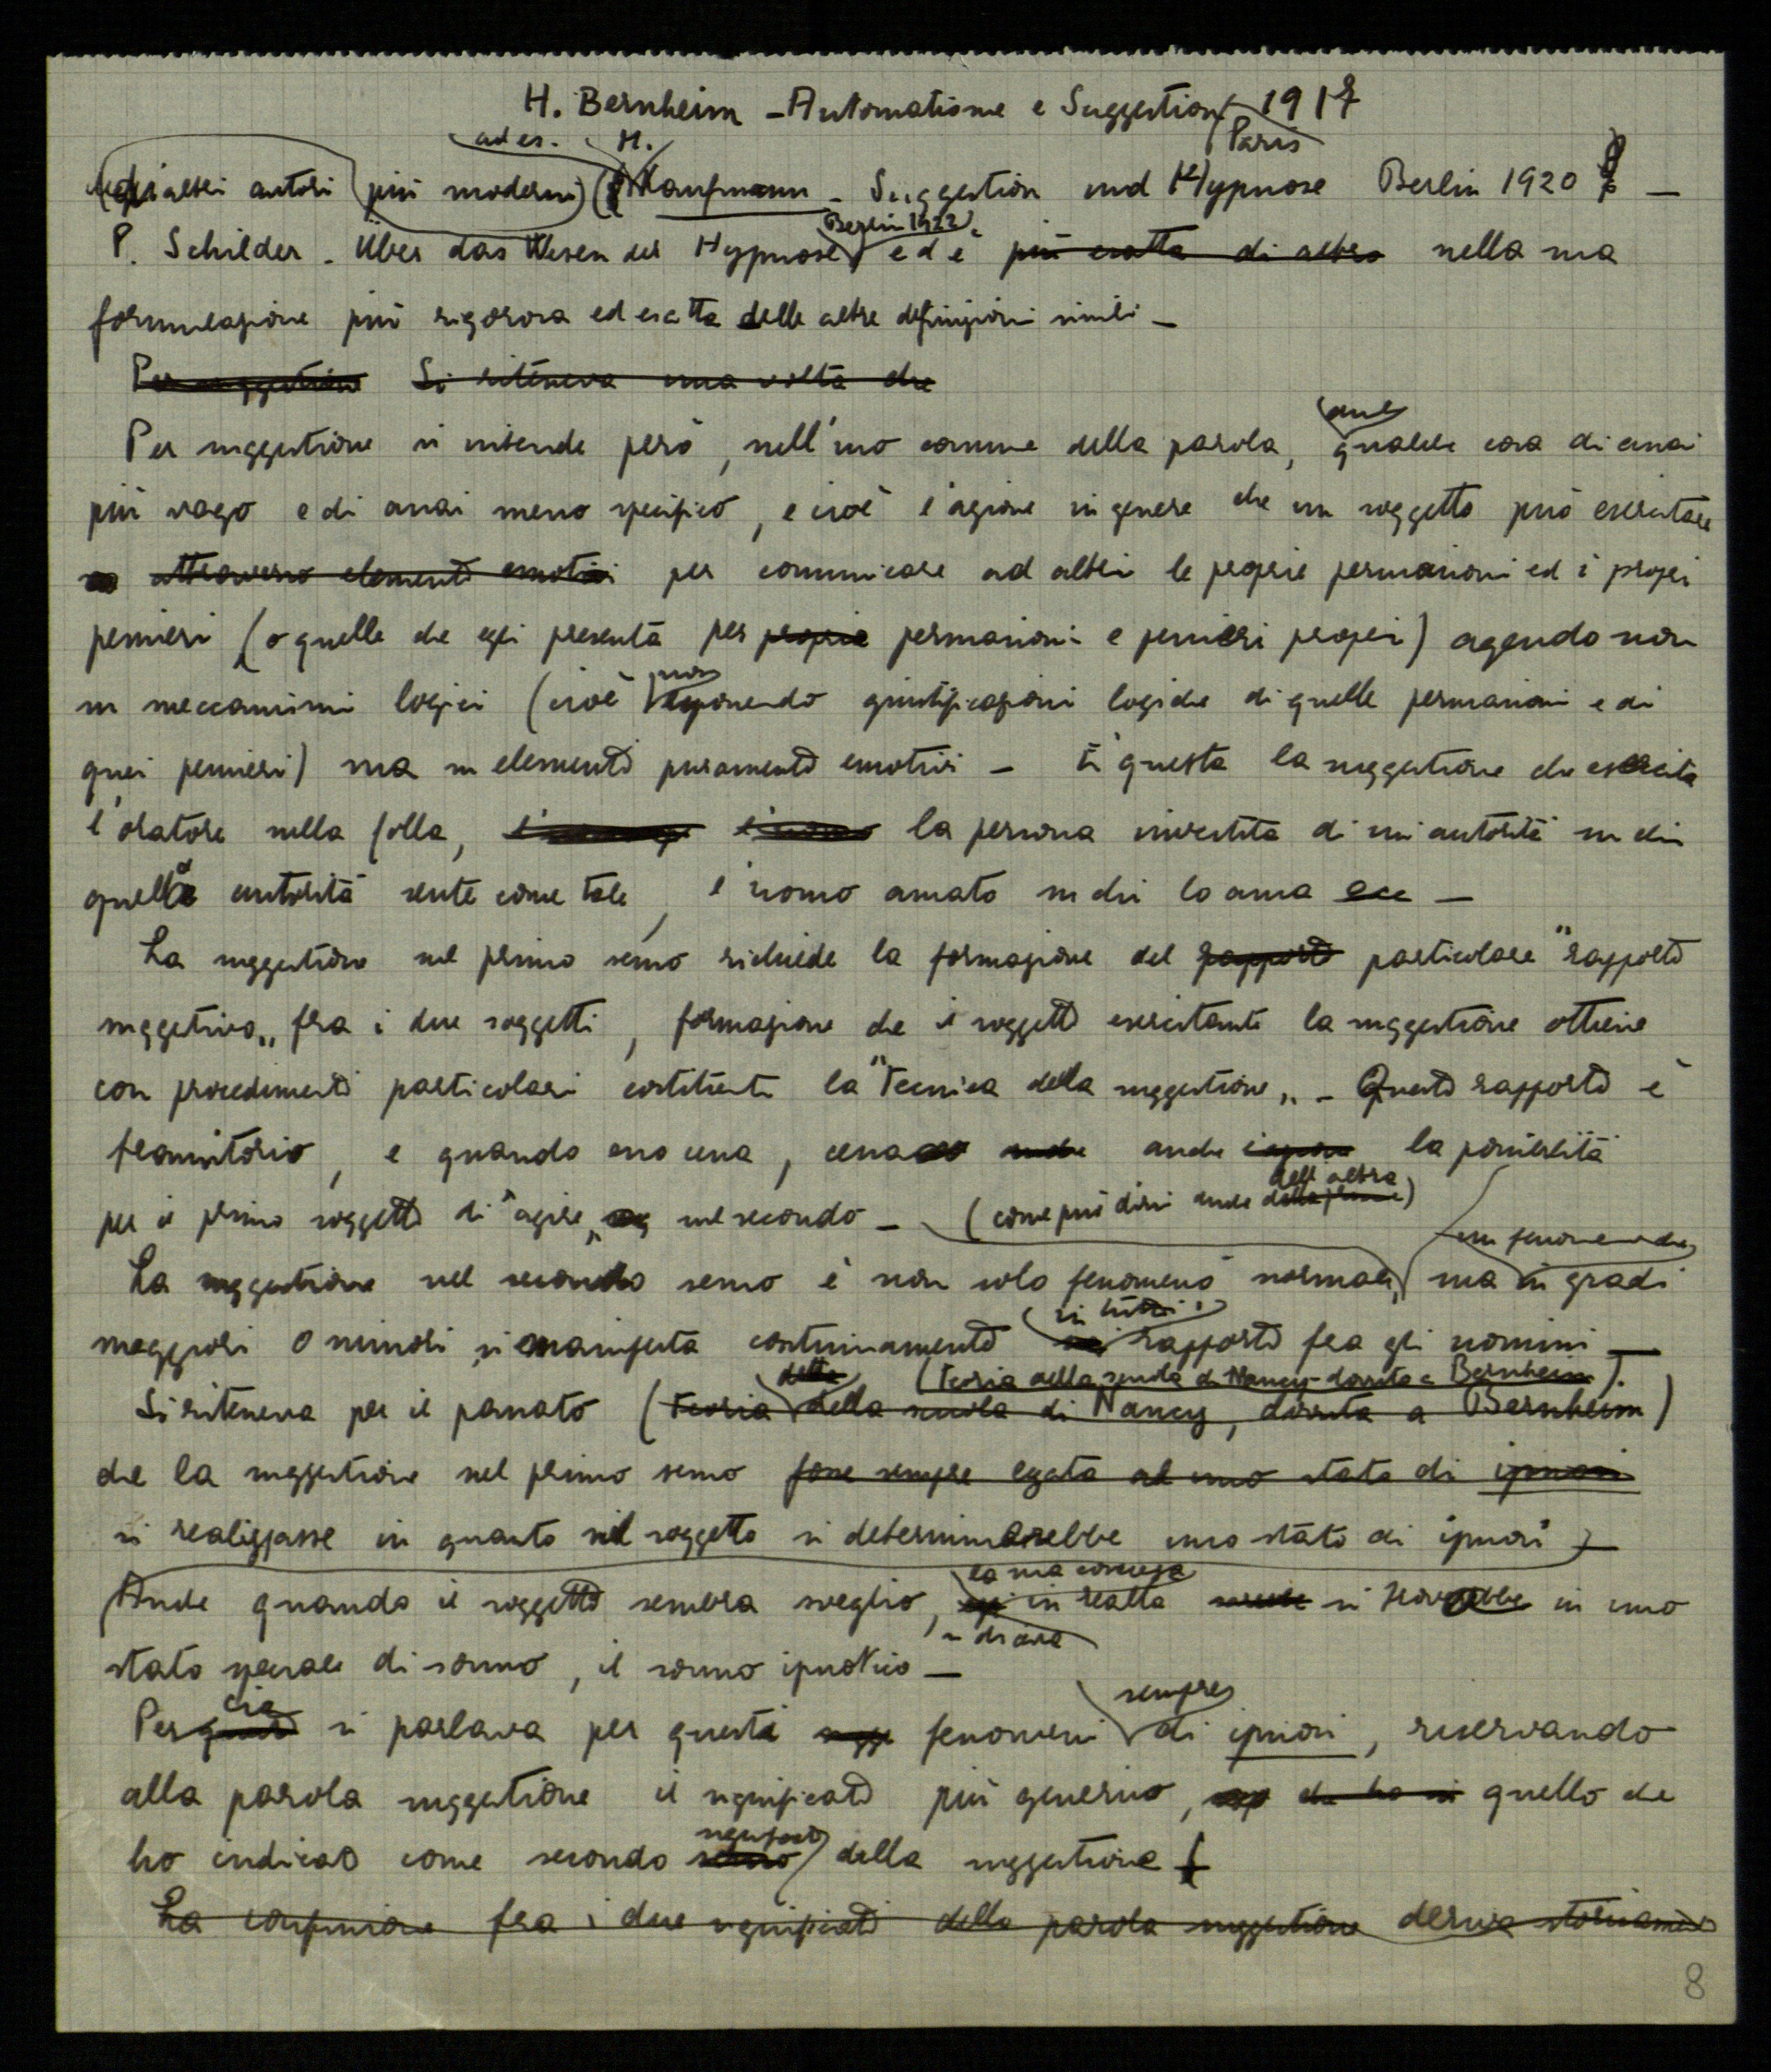 H. Bernheim – Automatisme e Suggestion 1917
Paris
ad es. H.
altri autori più moderni) ( Kaufmann – Suggestion und Hypnose Berlin 1920 –
Berlin 1922
P. Schilder – Über das Wesen der Hypnose ed è più esatta di altre nella sua
formulazione più rigorosa ed esatta delle altre definizioni simili –
Per suggestione Si riteneva una volta che
anche
Per suggestione si intende però, nell'uso comune della parola, qualche cosa di assai
più vago e di assai meno specifico, e cioè l'azione in genere che un soggetto può esercitare
attraverso elementi emotivi per comunicare ad altri le proprie persuasioni ed i propri
pensieri (o quelle che egli presenta per proprie persuasioni e pensieri propri) agendo non
non
su meccanismi logici (cioè esponendo giustificazioni logiche di quelle persuasioni e di
quei pensieri) ma su elementi puramente emotivi – È questa la suggestione che esercita
l'oratore sulla folla, l'uomo la persona investita di un'autorità su chi
quella autorità sente come tale, l'uomo amato su chi lo ama ecc –
La suggestione nel primo senso richiede la formazione del rapporto particolare "rapporto
suggestivo„ fra i due soggetti, formazione che il soggetto esercitante la suggestione ottiene
con procedimenti particolari costituenti la "Tecnica della suggestione„ – Questo rapporto è
transitorio, e quando esso cessa, cessa anche anche la possibilità
dell'altra
per il primo soggetto di "agire„ sul secondo – (come può dirsi anche della prima)
un fenomeno che
La suggestione nel secondo senso è non solo fenomeno normale, ma in gradi
in tutti i
maggiori o minori si manifesta continuamente nei rapporti fra gli uomini –
della (Teoria della scuola di Nancy – dovuta a Bernheim).
Si riteneva per il passato (Teoria della scuola di Nancy, dovuta a Bernheim)
che la suggestione nel primo senso fosse sempre legata ad uno stato di ipnosi
si realizzasse in quanto nel soggetto si determinerebbe uno stato di ipnosi –
la sua coscienza
Anche quando il soggetto sembra sveglio, in realtà si troverebbe in uno
si diceva
stato speciale di sonno, il sonno ipnotico –
ciò sempre
Per questo si parlava per questi fenomeni di ipnosi, riservando
alla parola suggestione il significato più generico, che ho quello che
significato
ho indicato come secondo senso della suggestione
La confusione fra i due significati della parola suggestione deriva storicamente
8